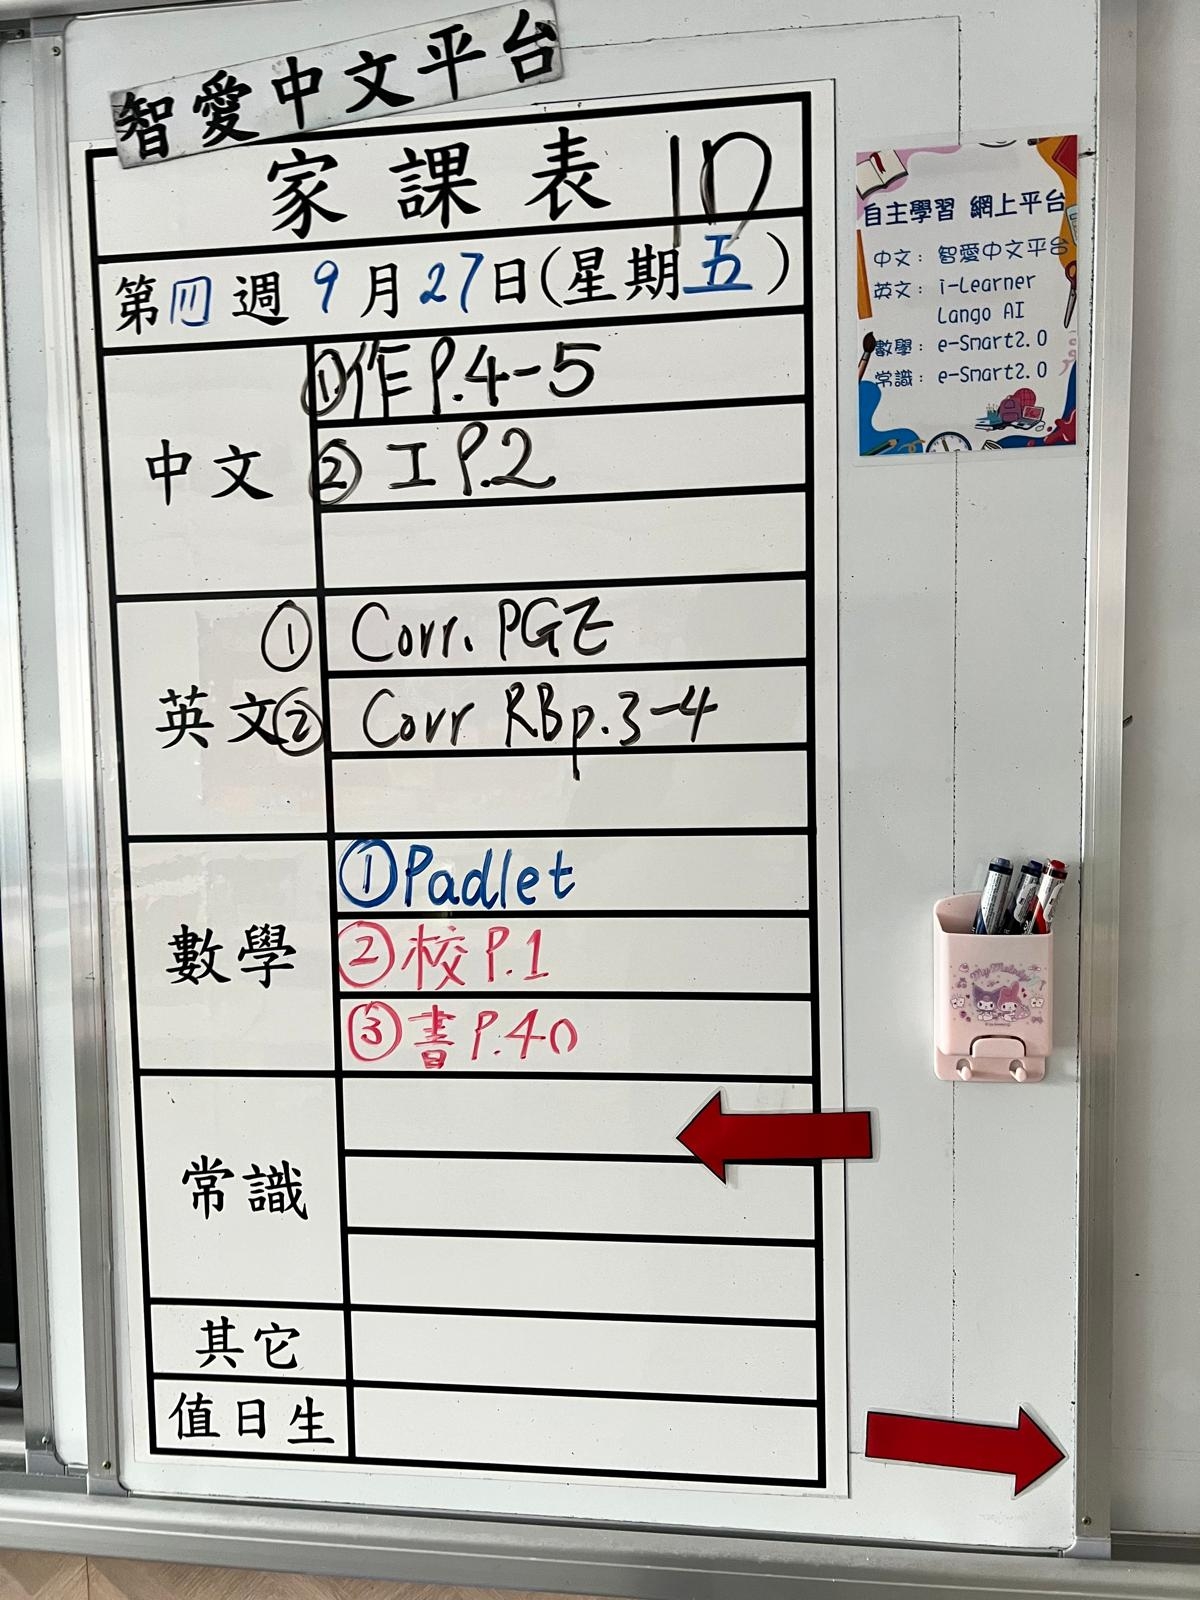 智愛中文平台
家課表 1D
第四週 9月27日(星期五)
中文
①作P.4-5
②工P.2
英文
① Corr. PGE
② Corr RB p.3-4
數學
①Padlet
②校P.1
③書P.40
常識
其它
值日生
自主學習 網上平台
中文： 智愛中文平台
英文： i-Learner
Lango AI
數學： e-Smart2.0
常識： e-Smart2.0
My Melody